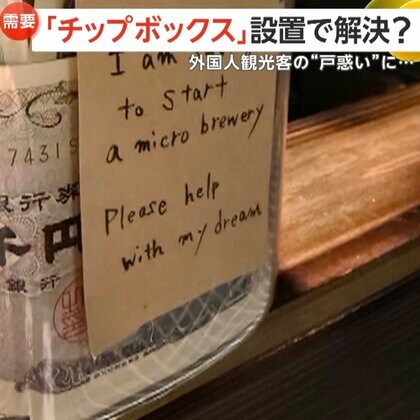 需要
「チップボックス」設置で解決？
外国人観光客の“戸惑い”に…
I am
to start
a micro brewery
Please help
with my dream
74319
銀行券
千円
銀行